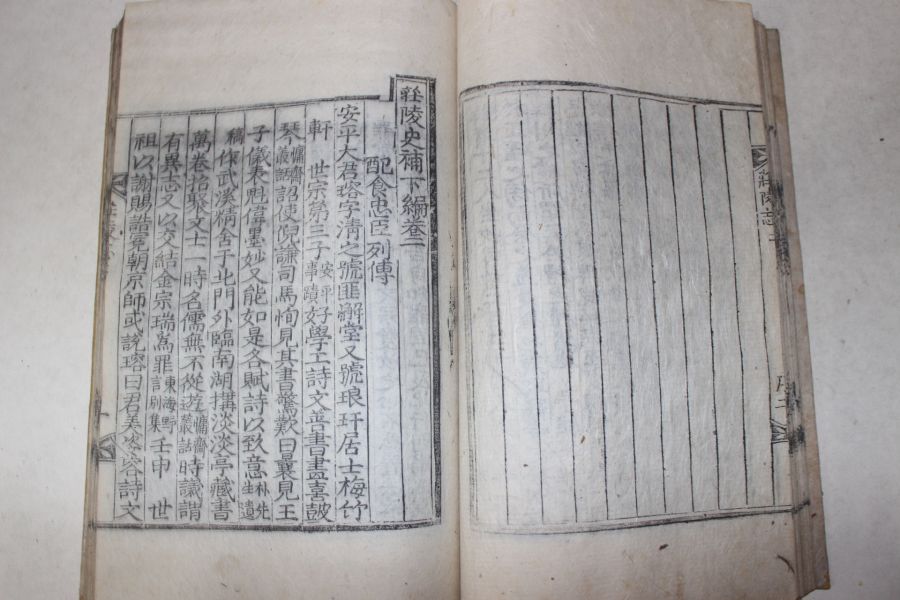 莊陵史補下編卷二
配食忠臣列傳
安平大君瑢字清之號匪懈堂又號琅玕居士梅竹
軒 世宗第三子安平事蹟好學工詩文善書畫喜鼓
琴慵齋叢話詔使倪謙司馬恂見其書驚歎曰曩見王
子儀表魁偉墨妙又能如是各賦詩以致意朴先生遺
稿作武溪精舍于北門外臨南湖搆淡淡亭藏書
萬卷招聚文士一時名儒無不從遊慵齋叢話時議謂
有異志又以交結金宗瑞爲罪東海野言別集壬申 世
祖以謝賜誥冕朝京師或說瑢曰君美姿 詩文
莊陵志